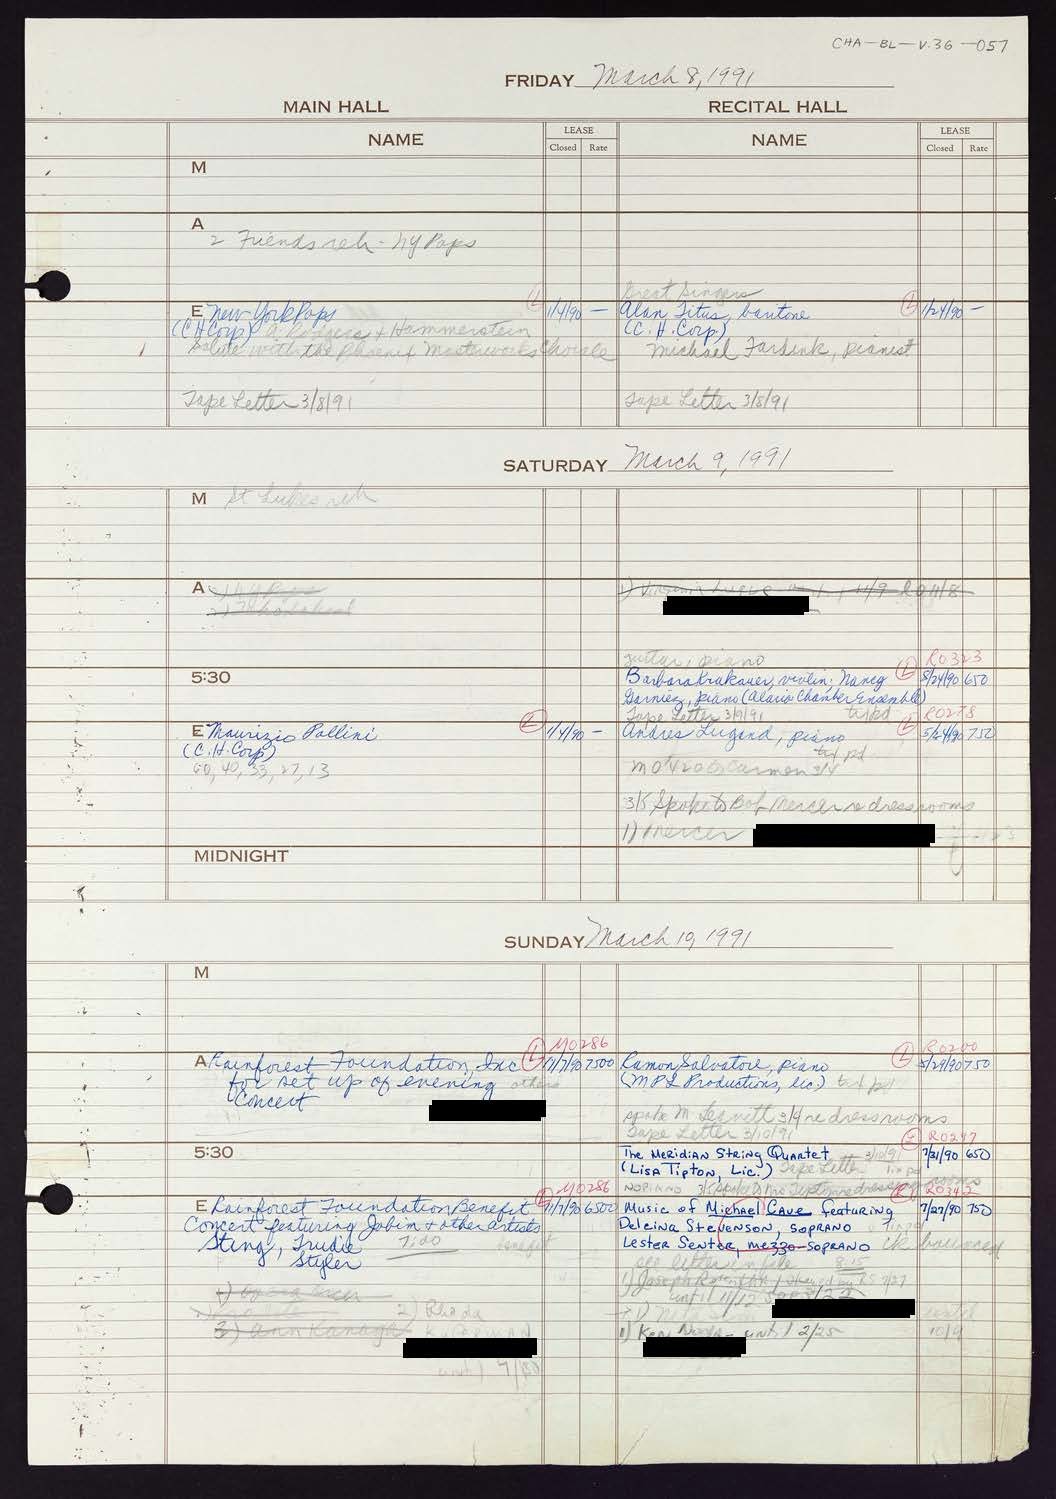 CHA-BL-V.36-057
FRIDAY March 8, 1991
MAIN HALL RECITAL HALL
NAME LEASE Closed Rate NAME LEASE Closed Rate
M
A
2 Friends reh - NY Pops
Great Singers
E New York Pops L 1/4/90 — Alan Titus, baritone L 1/24/90 —
(CH Corp) A Rodgers + Hammerstein (C.H. Corp)
Salute with the Phoenix Masterworks Chorale Michael Fardink, pianist
Tape Letter 3/8/91 Tape Letter 3/8/91
SATURDAY March 9, 1991
M St Lukes reh
A 1) NY Pops
guitar, piano L R0323
5:30 Barbara Krakauer, violin; Nancy 5/24/90 650
Garniez, piano (Alaria Chamber Ensemble)
Tape Letter 3/9/91 tax pd L R0278
E Maurizio Pollini L 1/4/90 — Andres Lugand, piano 5/24/90 750
(C.H. Corp) tax pd
60, 40, 33, 27, 13 Carmen 3/4
3/5 Spoke to Bob Mercer re dressrooms
1) Mercer
MIDNIGHT
SUNDAY March 10, 1991
M
L M0286 L R0200
A Rainforest Foundation, Inc 11/7/90 7500 Ramon Salvatore, piano 5/29/90 750
for set up of evening others (MPL Productions, lic) tax pd
Concert
spoke M Leavitt 3/4 re dressrooms
Tape Letter 3/10/91
L R0247
5:30 The Meridian String Quartet 3/10/91 7/31/90 650
(Lisa Tipton, Lic.) Tape Letter
NO PIANO 3/5 Spoke to Ms Tipton re dressrooms
L M0286 L R0342
E Rainforest Foundation Benefit 11/7/90 6500 Music of Michael Cave featuring 7/27/90 750
Concert featuring Jobim + other artists Delcina Stevenson, soprano
Sting, Trudie 7:00 benefit Lester Senter, mezzo-soprano ck bounced
Styler
see letter in file 8:15
until 11/12
2) Rhoda
3) Ann Kanagh 1) Ken Noda - until 2/25 10/9
until 7/30